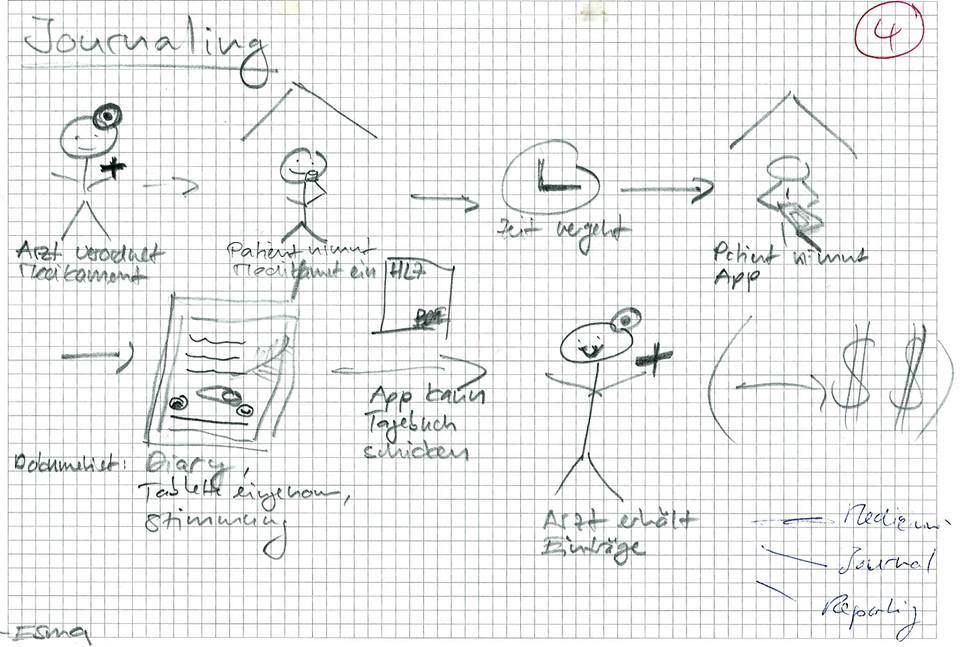 Journaling
4
Arzt verordnet
Medikament
Patient nimmt
Medikamt ein
Zeit vergeht
Patient nimmt
App
HL7
PDF
App kann
Tagebuch
schicken
Dokumetiert: Diary,
Tablette eingenom,
Stimmung
Arzt erhält
Einträge
$ $
Journal
Reporting
-ESma